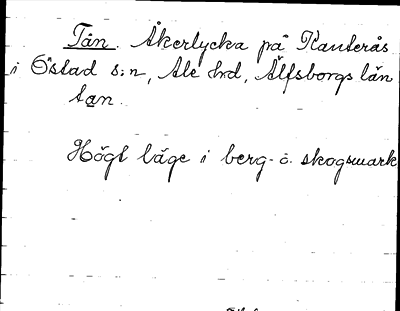 Tån. Åkerlycka på Kanterås
i Östad s:n, Ale hd, Älfsborgs län
tan.
Högt läge i berg- o. skogsmark